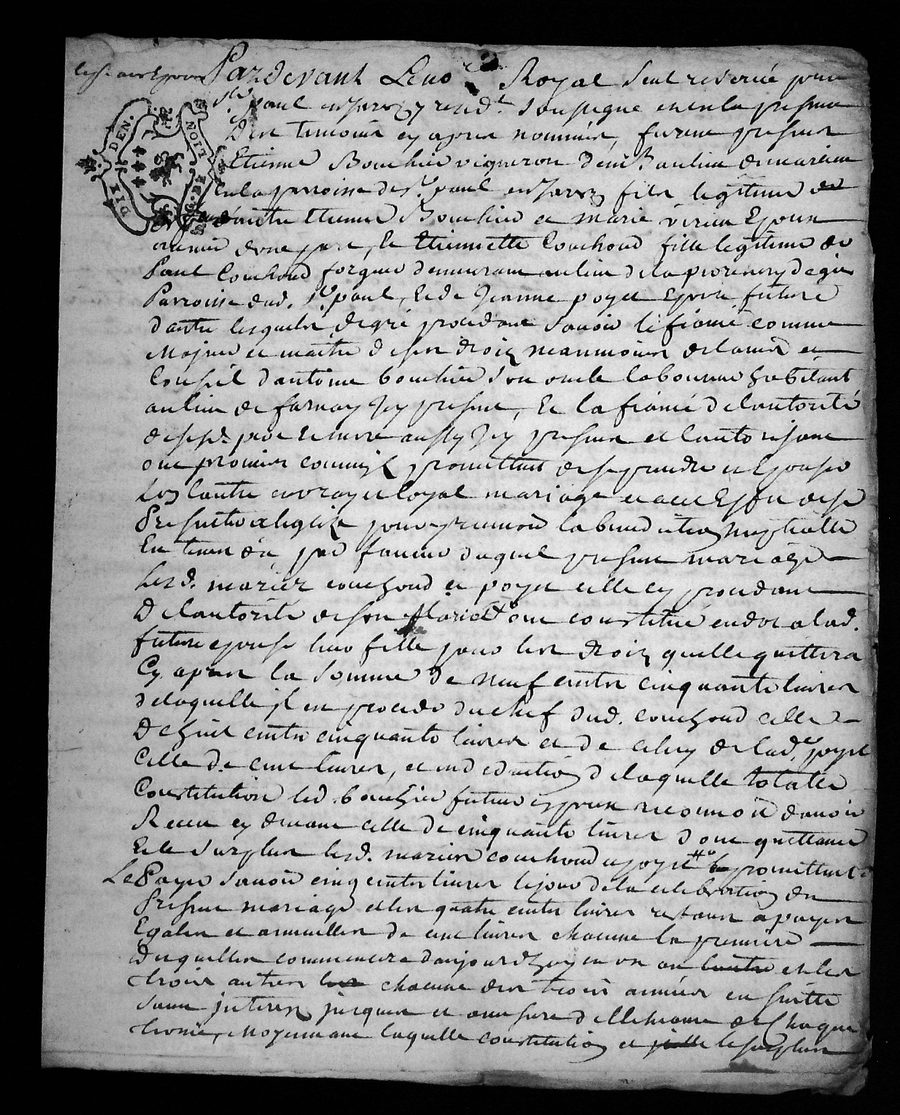 Pardevant Leno Royal Seul reservé pour
St paul en Jarez resid.t soussigné en en la presence
Des temoins cy apres nommés, furent presens
Etienne Bouchié vigneron dem.t au lieu de
en la parroisse de St paul en Jarez fils legitime de
autre Etienne Bouchié et marie Epoux
avenir d'une part, Et Etiennette Couchoud fille legitime de
Paul Couchoud forgeur demeurant au lieu de la
Parroisse dud. St paul, et de Jeanne poyet Epouse future
d'autre lesquels de gré procedant Savoir le fiancé comme
Majeur et maitre de ses droits neanmoins de l'avis et
Conseil d'antoine bouchié son oncle laboureur habitant
au lieu de farnay Icy present, Et la fiancée de l'autorité
de sesd. pere et mere aussy Icy presens et l'autorisant
ont promis promettent de se prendre et Epouser
L'un l'autre en vray et loyal mariage et a cet Effet de se
Presenter a l'eglise pour y recevoir la benediction nuptialle
En faveur duquel present mariage
Lesd. mariés couchoud et poyet celle cy procedant
De l'autorité de son Mary ont constitué en dot a lad.
future epouse leur fille pour les droits quelle quittera
Cy apres la somme de neuf cents cinquante livres
de laquelle il en procede du chef dud. couchoud celle
De huit cents cinquante livres et de celuy de lad. poyet
Celle de cent livres, et en deduction de laquelle totalle
Constitution led. bouchié futur epoux reconnoit d'avoir
Receu cy devant celle de cinquante livres dont quittance
Et le Surplus lesd. mariés couchoud et poyet promettent
Le Payer Savoir cinq cents livres le jour de la celebration du
Present mariage et les quatre cents livres restant a payer
Egales et annuelles de cent livres chacune la premiere
Desquelles commencera d'aujourd'huy en un an et les
trois autres chacune des trois années en suitte
Sans interets jusques et a mesure d'echeance de chaque
terme, Moyennant laquelle constitution et le surplus